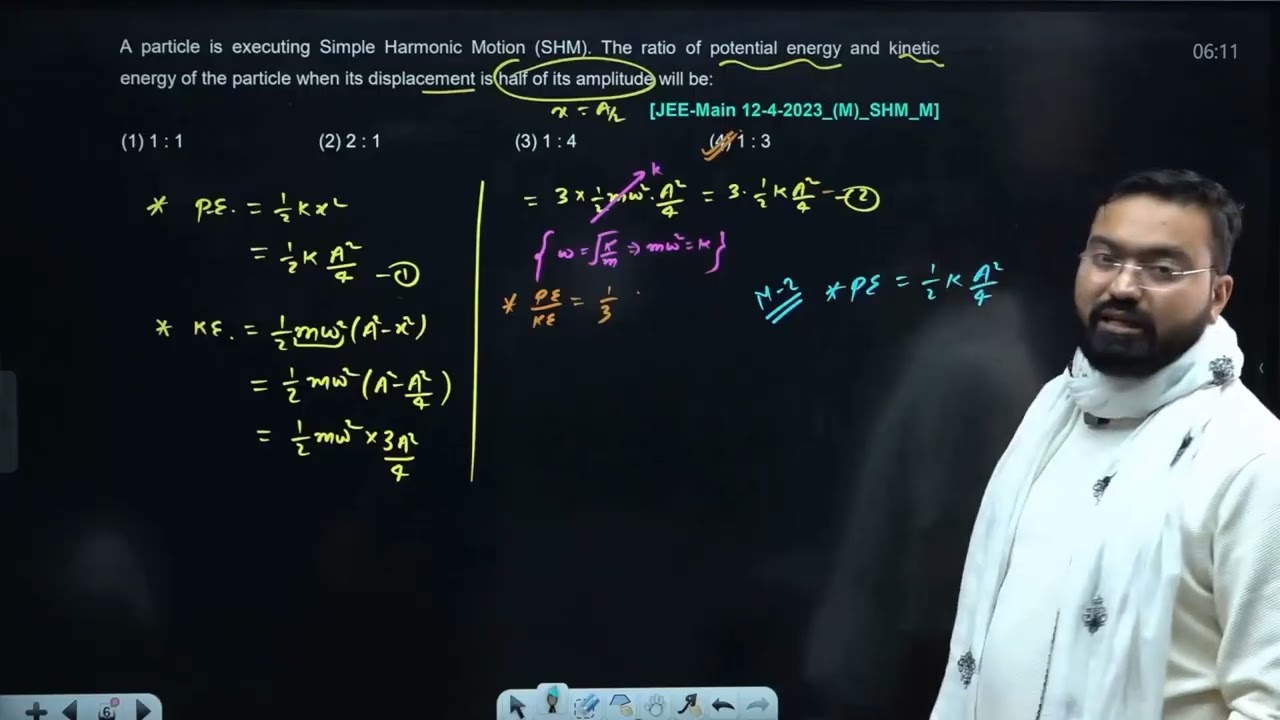 A particle is executing Simple Harmonic Motion (SHM). The ratio of potential energy and kinetic
energy of the particle when its displacement is half of its amplitude will be:
x = A/2
[JEE-Main 12-4-2023_(M)_SHM_M]
(1) 1 : 1 (2) 2 : 1 (3) 1 : 4 (4) 1 : 3
06:11
* P.E. = 1/2 K x²
= 1/2 K A²/4 - ①
* K.E. = 1/2 mω² (A² - x²)
= 1/2 mω² (A² - A²/4)
= 1/2 mω² × 3A²/4
k
= 3 × 1/2 mω² · A²/4 = 3 · 1/2 K A²/4 - ②
{ ω = √K/m ⇒ mω² = K }
* PE/KE = 1/3
M-2 * PE = 1/2 K A²/4
6